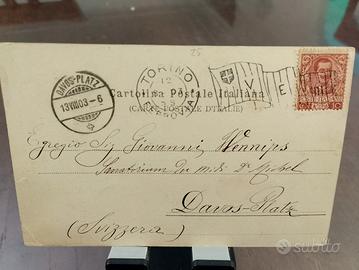 25
TORINO
12
FERROVIA
DAVOS-PLATZ
13.VIII.03-6
Cartolina Postale Italiana
(CARTE POSTALE D'ITALIE)
Egregio Sig Giovanni Wennips
Sanatorium du midi Dr Michel
Davos-Platz
(Svizzera)
subito